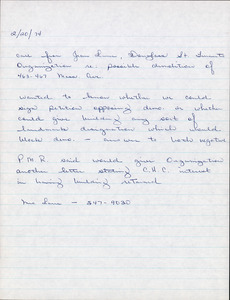 12/20/74
call from Jean Luse, Douglass St. Tenants
Organization re: possible demolition of
463-467 Mass Ave.
wanted to know whether we could
sign petition opposing demo. or whether
could give building any sort of
landmark designation which would
block demo. - answer to both negative
P.M.R. said would give Organization
another letter stating C.H.C. interest
in having building retained
Ms. - 247-9020